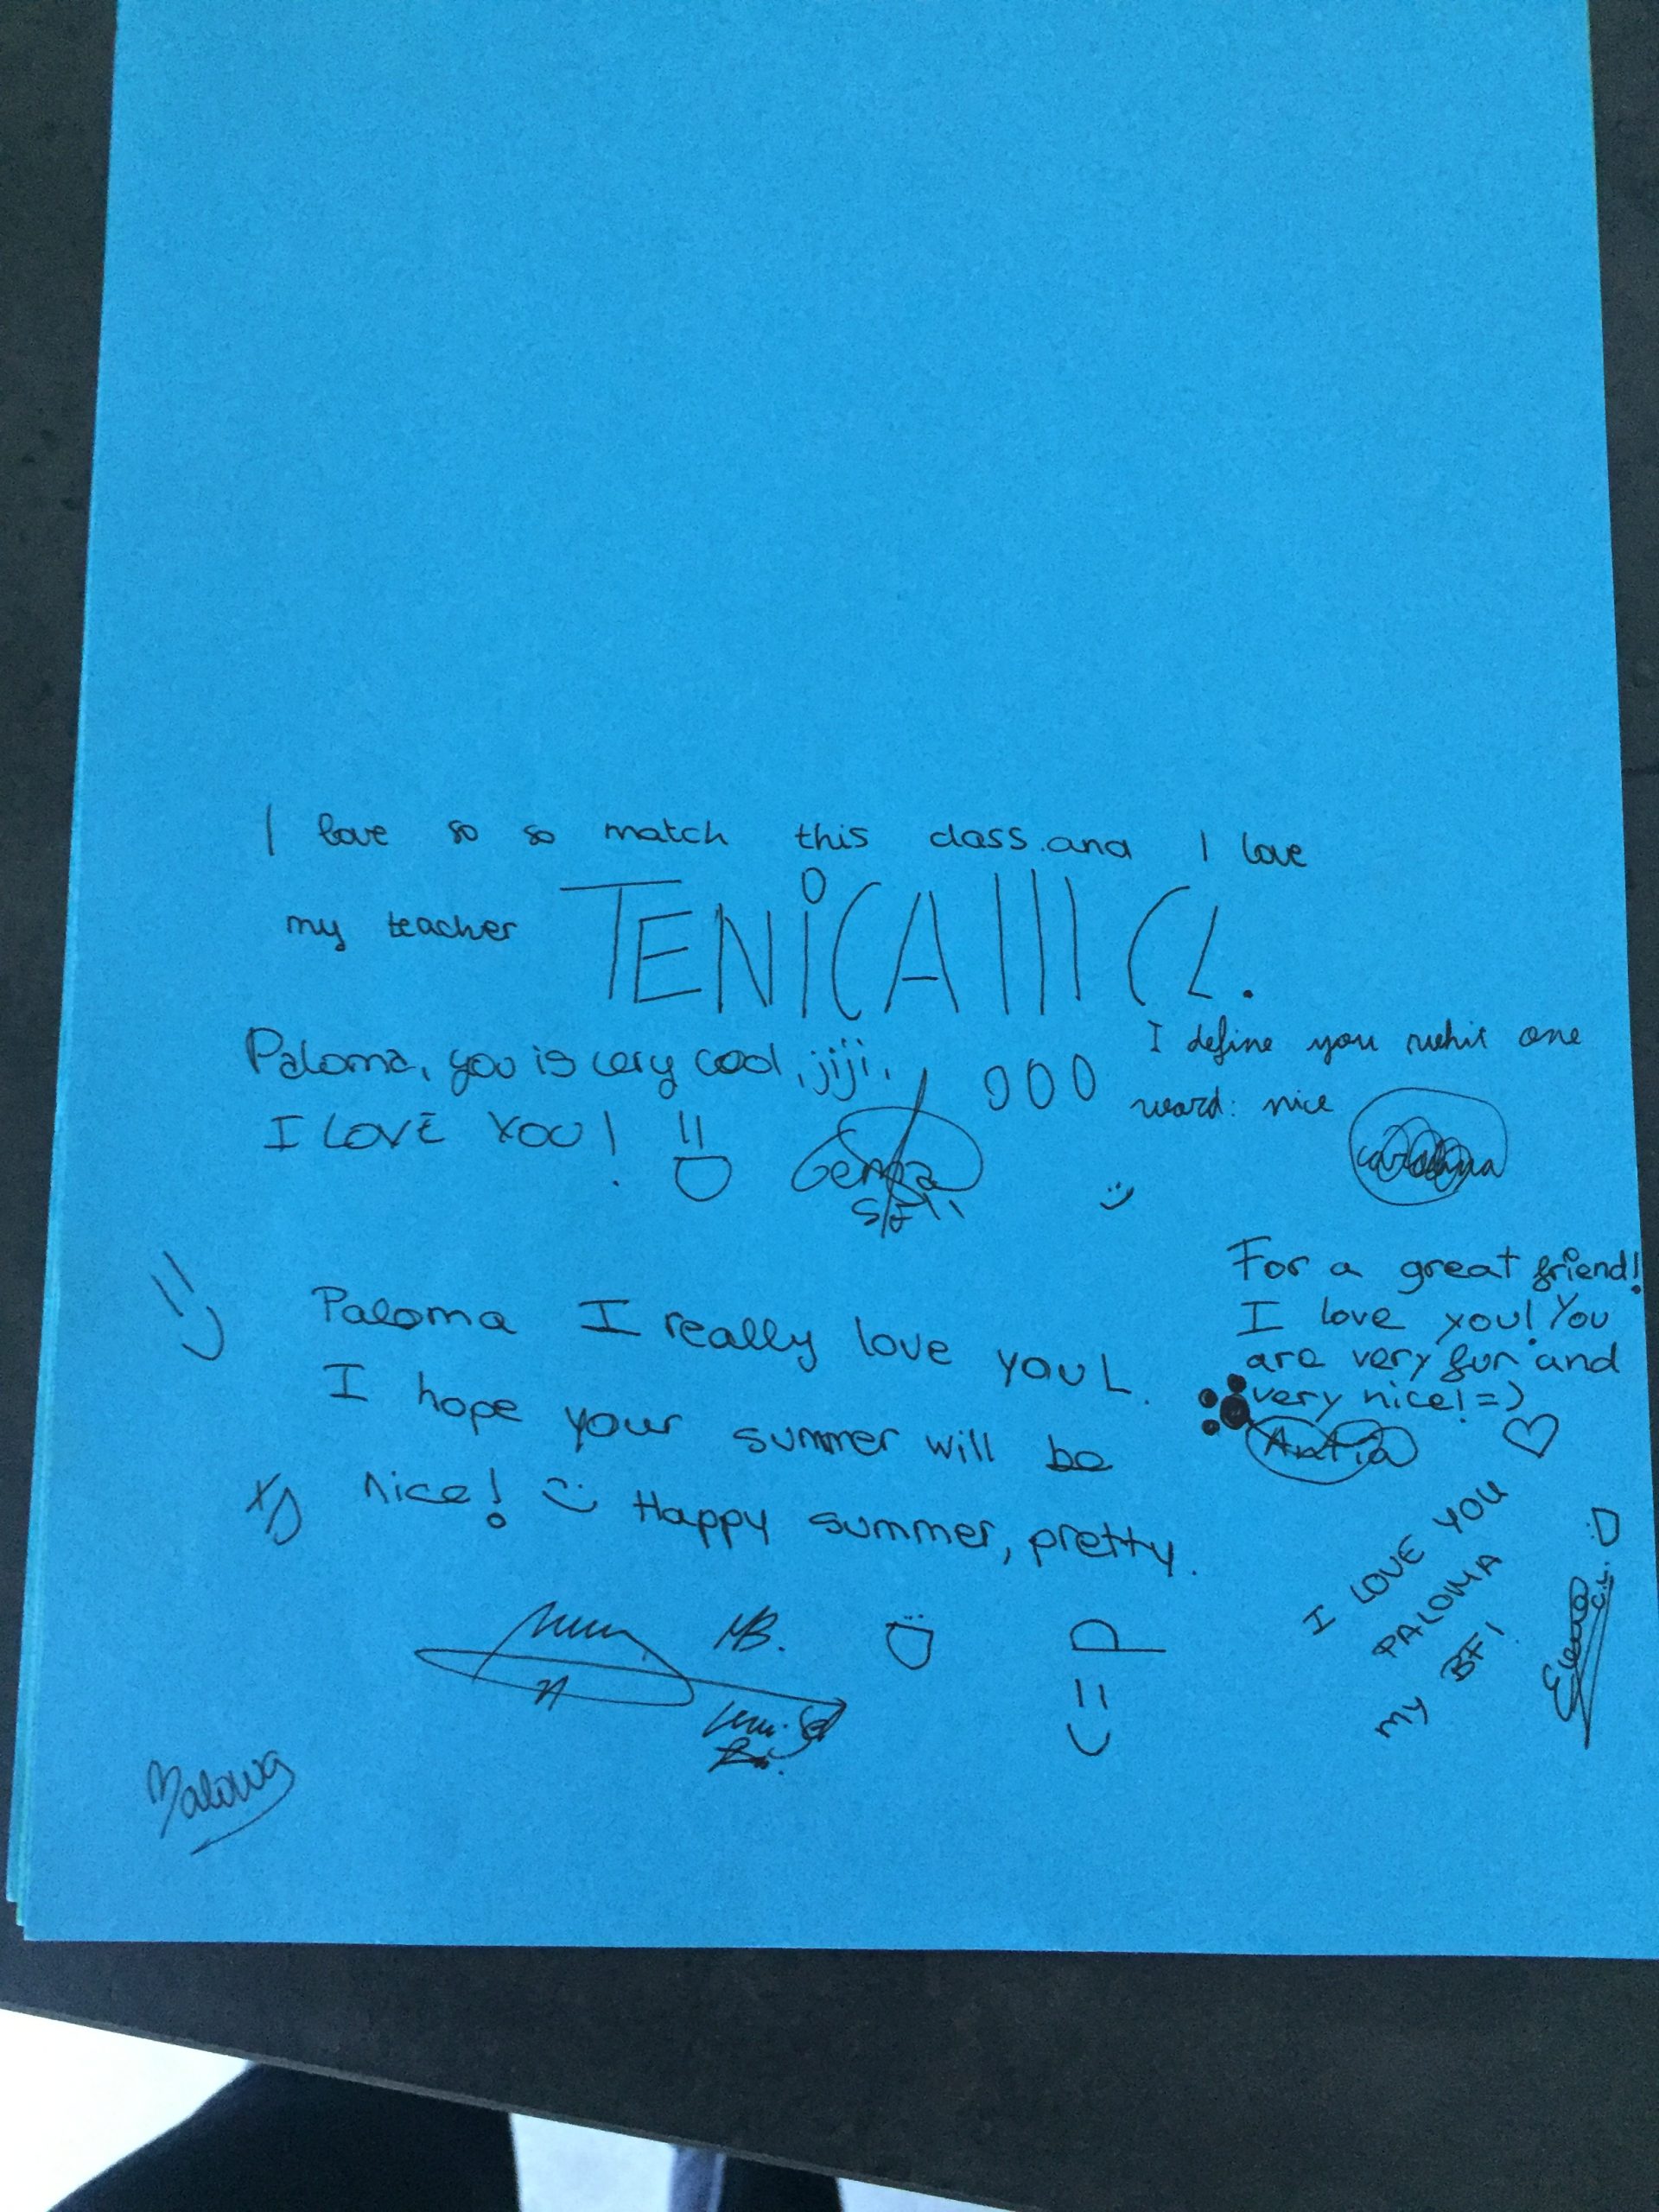 I love so so match this class. and I love
my teacher TENiCA!!! CL.
Paloma, you is very cool, jiji,
I LOVE YOU!
I define you whit one
word: nice
For a great friend!
I love you! You
are very fun and
very nice! =)
Antía
Paloma I really love you L.
I hope your summer will be
nice! :) Happy summer, pretty.
XD
MB.
I LOVE YOU
PALOMA
MY BF!
Elena